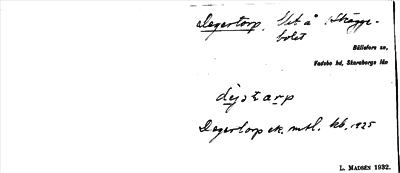 Degertorp, Skägge-
bolet
Bällefors sn,
Vadsbo hd, Skaraborgs län
Degertorp ek. mtl. kb. 1925
L. MADSÉN 1932.